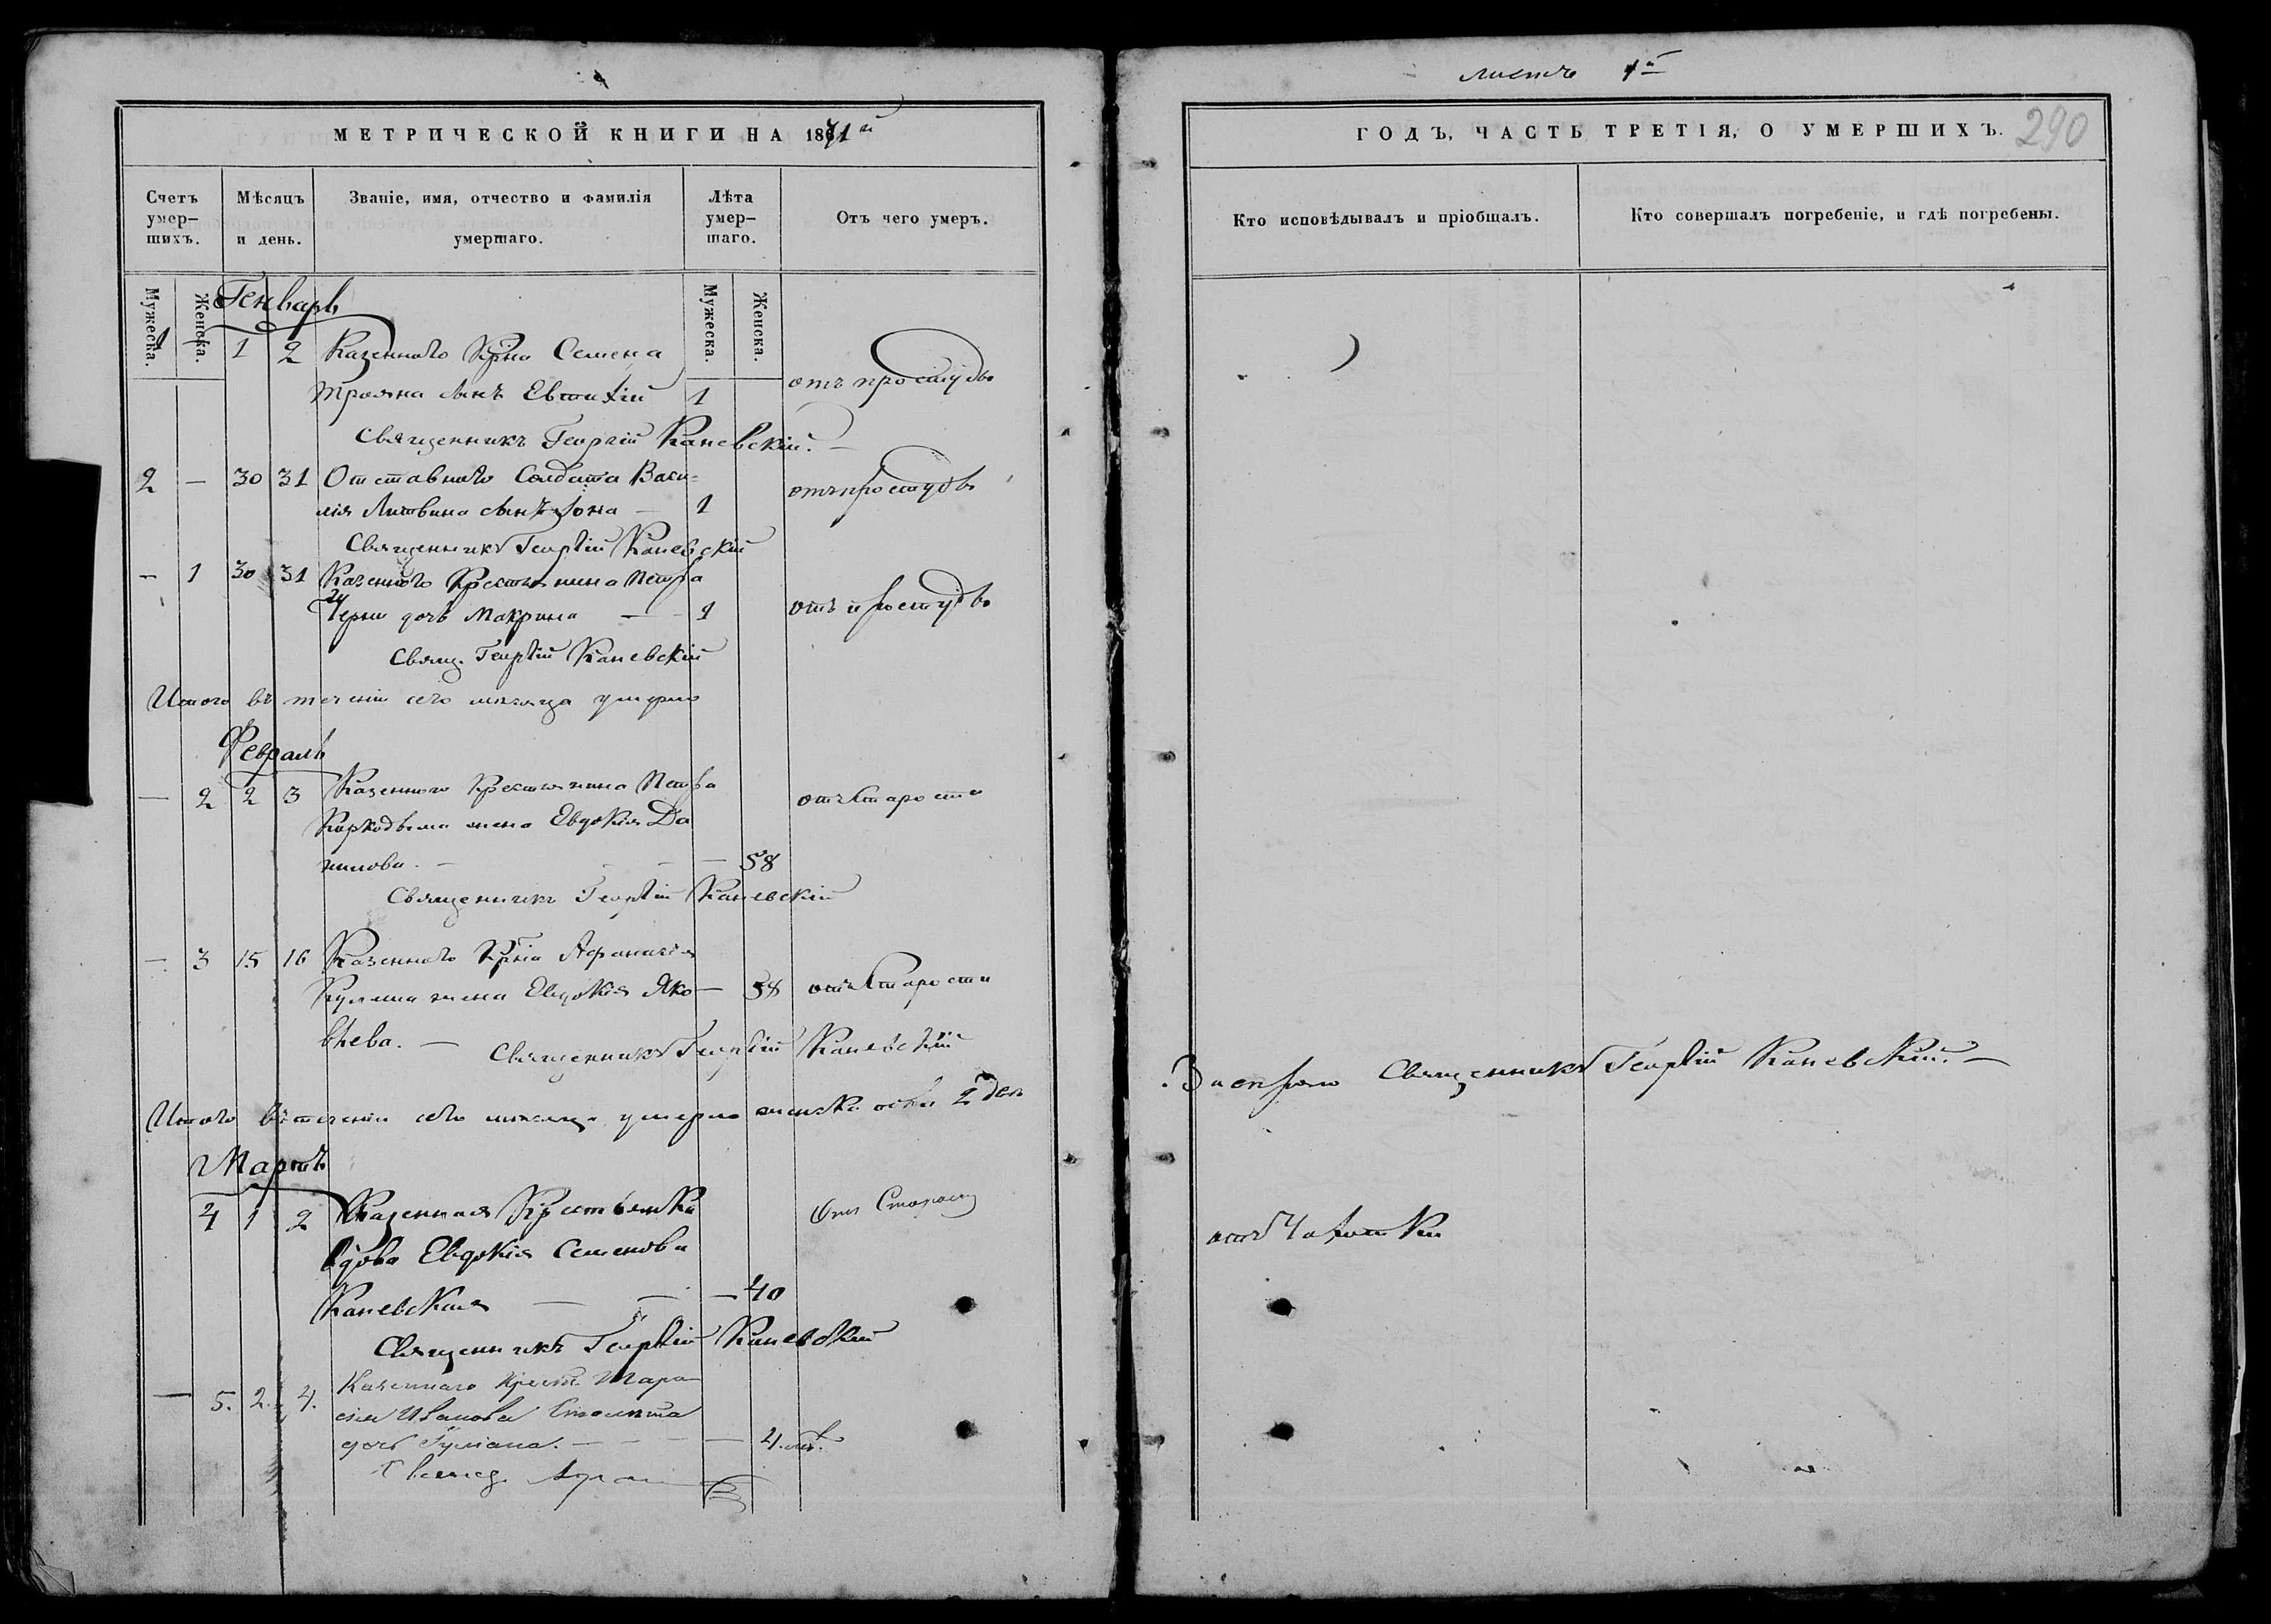 листъ 1й
290
МЕТРИЧЕСКОЙ КНИГИ НА 1871й
ГОДЪ, ЧАСТЬ ТРЕТІЯ, О УМЕРШИХЪ.
Счетъ умер-
шихъ.
Мѣсяцъ
и день.
Званіе, имя, отчество и фамилія
умершаго.
Лѣта
умер-
шаго.
Отъ чего умеръ.
Кто исповѣдывалъ и пріобщалъ.
Кто совершалъ погребеніе, и гдѣ погребены.
Мужеска.
Женска.
Мужеска.
Женска.
Генварь
1 — 1 2 Казеннаго Кр̃на Семена
Трояна сынъ Евтихій 1 отъ простуды
Священникъ Георгій Каневскій. —
2 — 30 31 Отставнаго Солдата Васи=
лія Литвина сынъ Іона — 1 отъ простуды
Священникъ Георгій Каневскій
— 1 30 31 Казеннаго Крестьянина Петра
дочь Макрина — 1 отъ простуды
Свящ. Георгій Каневскій
Итого въ теченіи сего мѣсяца умерло
Февраль
— 2 2 3 Казеннаго Крестьянина Петра
жена Евдокія Да
нилова. — — 58 отъ старости
Священникъ Георгій Каневскій
— 3 15 16 Казеннаго Кр̃на Афанасія
жена Евдокія Яко— 58 отъ старости
влева. —
Священникъ Георгій Каневскій
Итого въ теченіи сего мѣсяца умерло женска пола 2
Священникъ Георгій Каневскій. —
Мартъ
4 1 2 Казенная Крестьянка
вдова Евдокія Семенова
Каневская — — — 40
отъ Чахотки
Священникъ Георгій Каневскій
— 5. 2. 4. Казеннаго Крест. Тара
сія Иванова
дочь Іуліана. — — — 4.
Свящ.